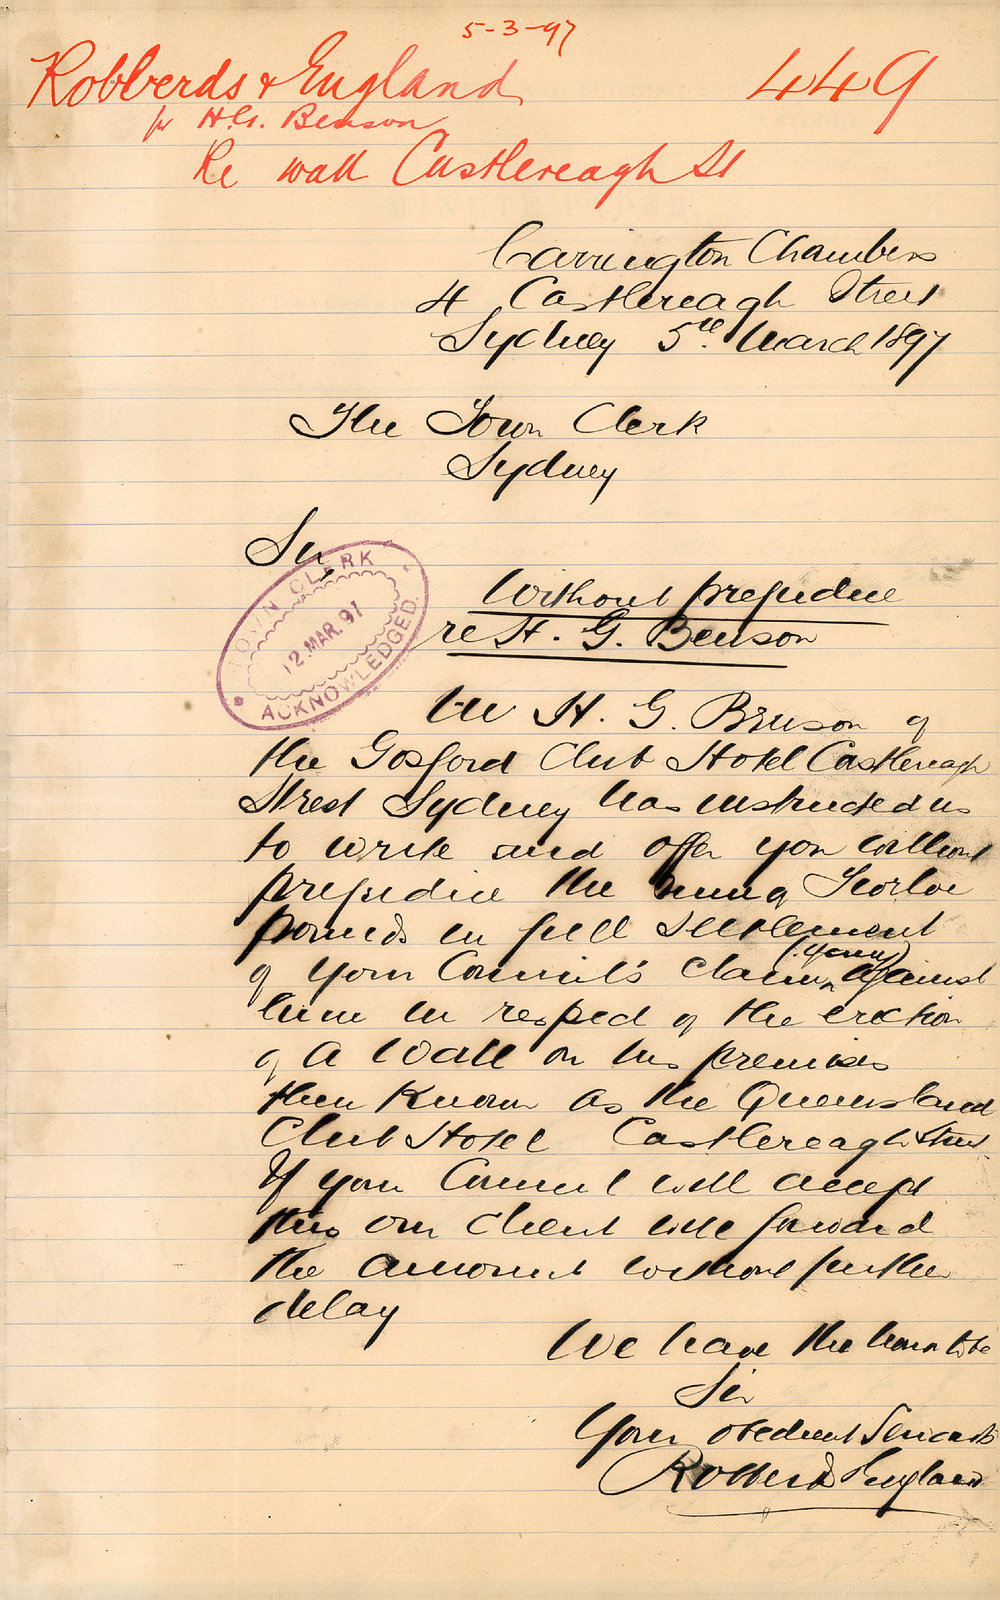 5-3-97
Robberds & England 449
for H.G. Benson
Re wall Castlereagh St
Carrington Chambers
4 Castlereagh Street
Sydney 5th March 1897
The Town Clerk
Sydney
Sir,
TOWN CLERK
12.MAR.97
ACKNOWLEDGED.
Without prejudice
re H. G. Benson
Mr H. G. Benson of
the Gosford Club Hotel Castlereagh
Street Sydney has instructed us
to write and offer you without
prejudice the sum of Twelve
pounds in full settlement
of your Council's claim against
him in respect of the erection
of a Wall on his premises
then known as the Queensland
Club Hotel Castlereagh Street
If your Council will accept
this our client will forward
the amount without further
delay
We have the honor to be
Sir
Your obedient Servants
Robberds England